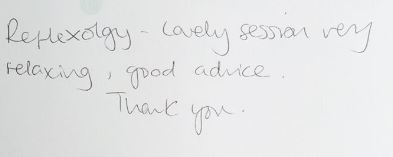 Reflexolgy - Lovely session very
relaxing, good advice.
Thank you.